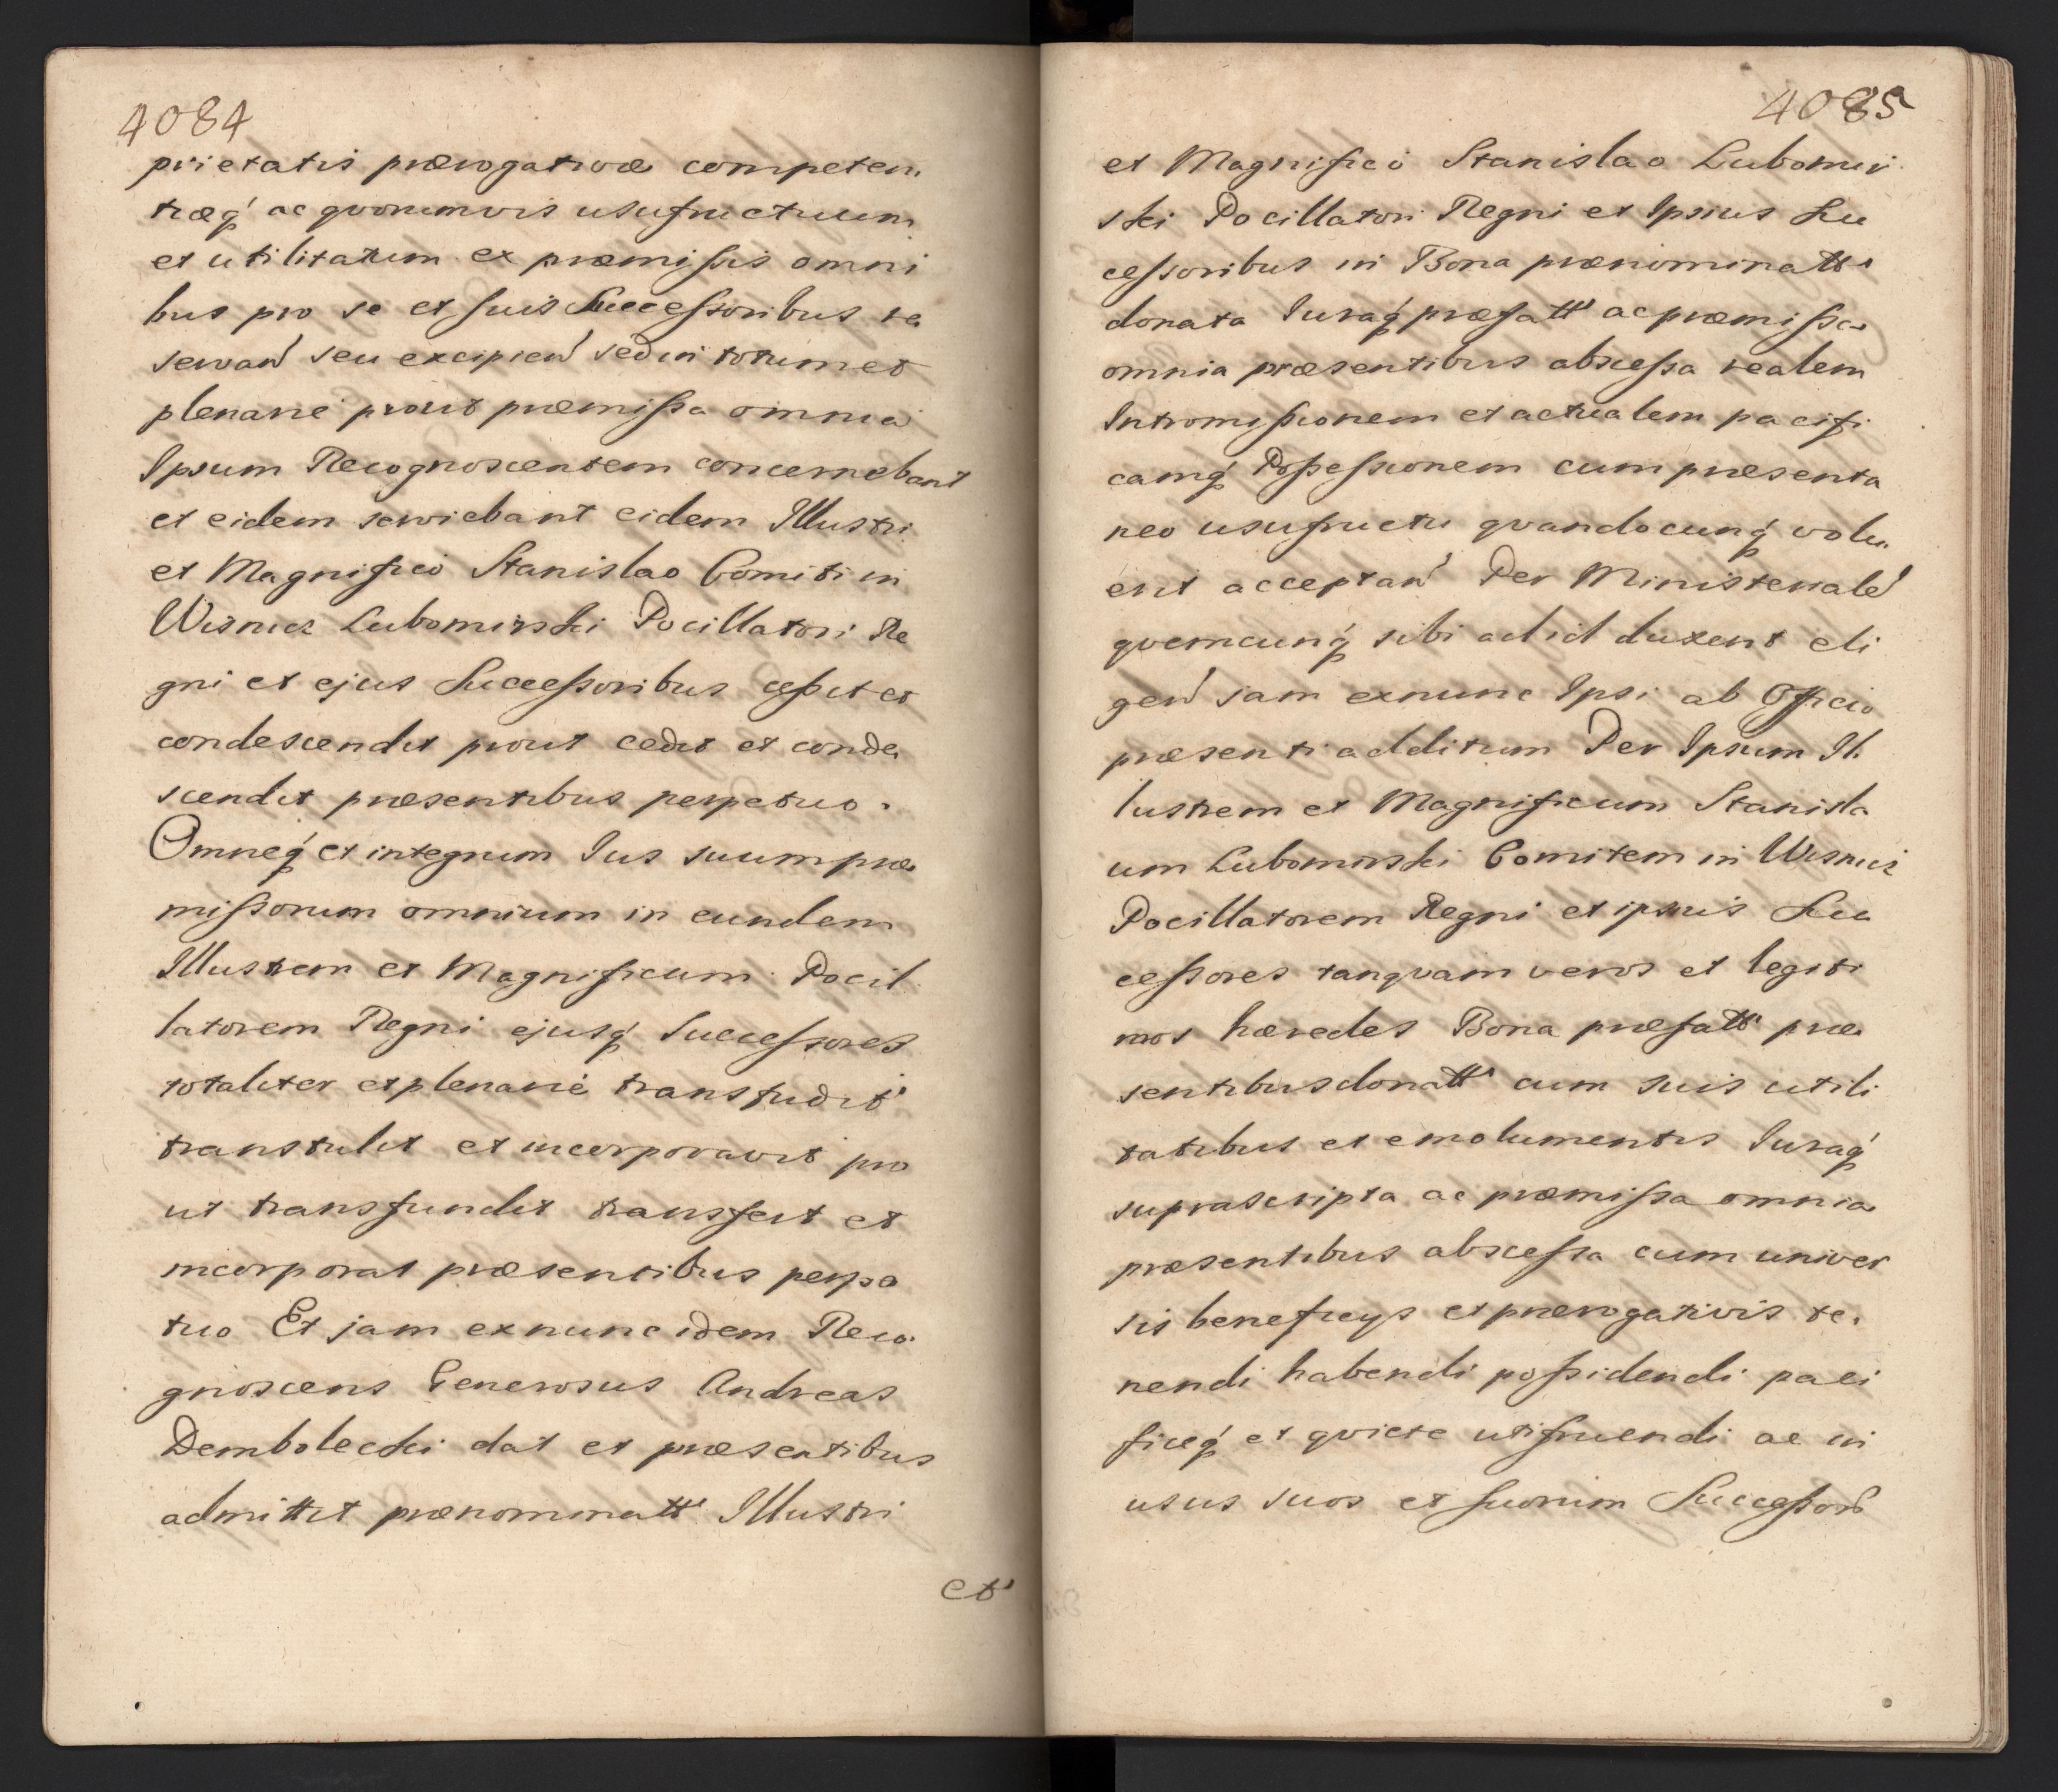 4084
prietatis prærogativæ competen
træq́ ac qvorumvis usufructuum
et utilitatum ex præmißis omni
bus pro se et suis Succeßoribus re
servan̄ seu excipien̄ sed in totum et
plenarié prout præmißa omnia
Ipsum Recognoscentem concernebant
et eidem serviebant eidem Illustri
et Magnifico Stanislao Comiti in
Wisnicz Lubomirski Pocillatori Re
gni et ejus Succeßoribus ceßit et
condescendit prout cedit et conde
scendit præsentibus perpetuo.
Omneq́ et integrum Ius suum præ
mißorum omnium in eundem
Illustrem et Magnificum Pocil
latorem Regni ejusq́ Succeßores
totaliter et plenarié transfudit
transtulit et incorporavit pro
ut transfundit transfert et
incorporat præsentibus perpe
tuo Et jam exnunc idem Reco
gnoscens Generosus Andreas
Dembolecki dat et præsentibus
admittit prænominatt' Illustri
et'
4085
et Magnifico Stanislao Lubomir
ski Pocillatori Regni et Ipsius Su
ceßoribus in Bona prænominatt'
donata Iuraq́ præfatt' ac præmißa
omnia præsentibus absceßa realem
Intromißionem et actualem pacifi
camq́ Poßeßionem cum præsenta
neo usufructu qvandocunq́ volu
erit acceptan̄ Per Ministeriale̅
qvemcunq́ sibi ad id duxerit eli
gen̄ jam exnunc Ipsi ab Officio
præsenti additum Per Ipsum Il
lustrem et Magnificum Stanisla
um Lubomirski Comitem in Wisnicz
Pocillatorem Regni et ipsius Suc
ceßores tanqvam veros et legiti
mos hæredes Bona præfatt' præ
sentibus donatt' cum suis utili
tatibus et emolumentis Iuraq́
suprascripta ac præmißa omnia
præsentibus absceßa cum univer
sis beneficys et prærogativis te
nendi habendi poßidendi paci
ficeq́ et qviete utifruendi ac in
usus suos et suorum Succeßor̄